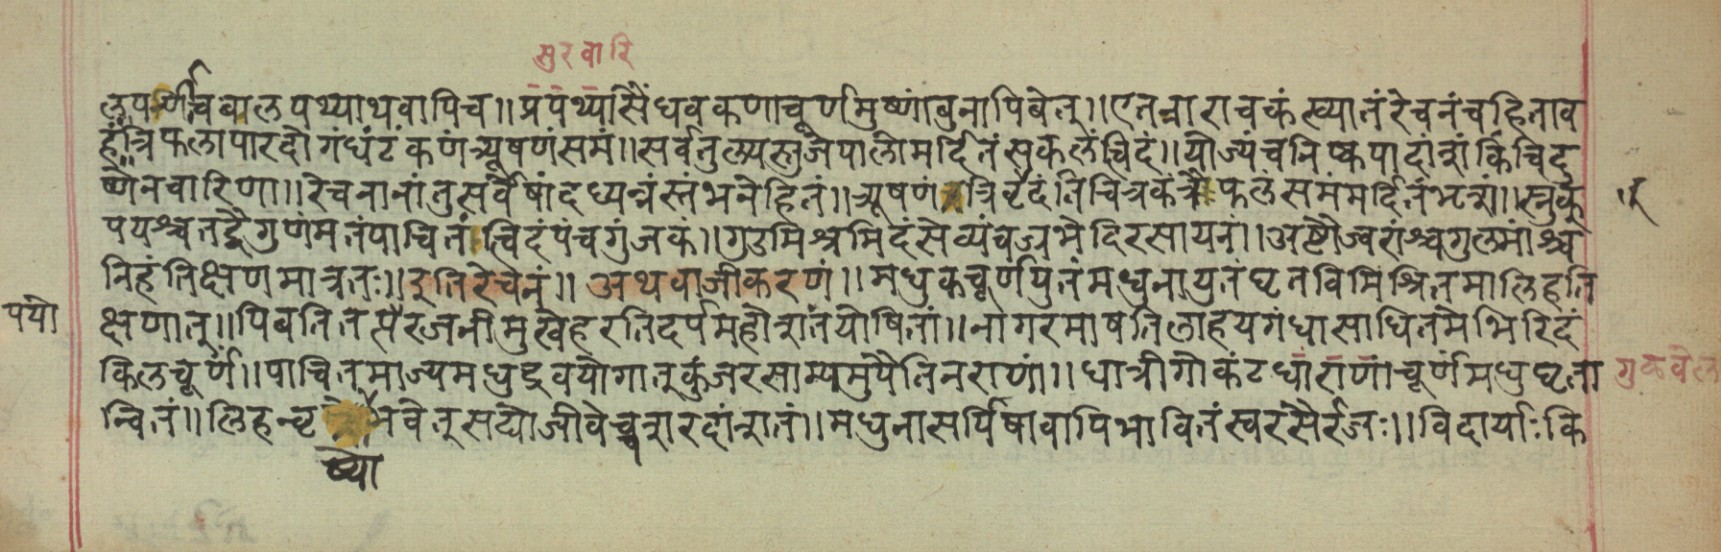 सुरवारि
लुपर्णीचवालपथ्याथवापिच॥प्रपथ्यासैंधवकणाचूर्णमुष्णांवुनापिवेत्॥एतन्नाराचकंख्यातंरेचनंचहिताव
हं॥त्रिफलापारदौगंधंटंकणंत्र्यूषणंसमं॥सर्वतुल्यस्तुजैपालोमर्दितंसकलंचिदं॥योज्यंचनिष्कपादांशंकिंचिदु
ष्णेनवारिणा॥रेचनानांतुसर्वेषांदध्यन्नंस्तंभनेहितं॥त्र्यूषणंत्रिवृदंतिचित्रकंत्रैफलंसमंमर्दितंभृशं॥स्नुक्
पयश्चतद्वैगुणंमतंपाचितंत्विदंपंचगुंजकं॥गुडमिश्रमिदंसेव्यंवज्रभेदिरसायनं॥अष्टौज्वरांश्चगुल्मांश्च
निहंतिक्षणमात्रतः॥इतिरेचनं॥अथवाजीकरणं॥मधुकचूर्णयुतंमधुनायुतंघृतविमिश्रितमालिहति
पयो
क्षणात्॥पिवतितत्सरजनीमुखेहरतिदर्पमहोशतयोषितां॥नागरमाषतिलाहयगंधासाधितमेभिरिदं
किलचूर्णं॥पाचितमाज्यमधुद्रवयोगात्कुंजरसाम्यमुपैतिनराणां॥धात्रीगोकंटधाराणांचूर्णमधुघृता
गुळवेल
न्वितं॥लिहन्वृभवेत्सद्योजीवेच्चशरदांशतं॥मधुनासर्पिषावापिभावितंस्वरसैर्रजः॥विदार्याःकि
ष्या